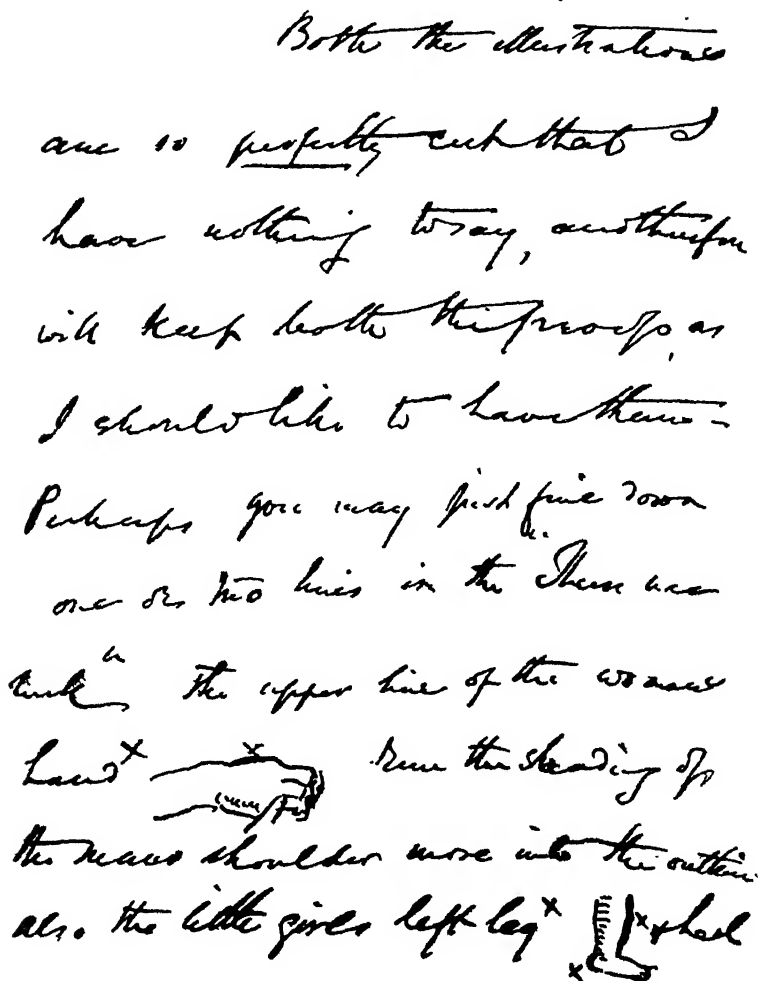 Both the illustrations
are so perfectly cut that I
have nothing to say, and therefore
will keep both the proofs, as
I should like to have them –
Perhaps you may just fine down
one or two lines in the "There nae
luck" The upper line of the womans
hand x x Run the shading of
the mans shoulder more into the outline
also the little girls left leg x x x & heel
x